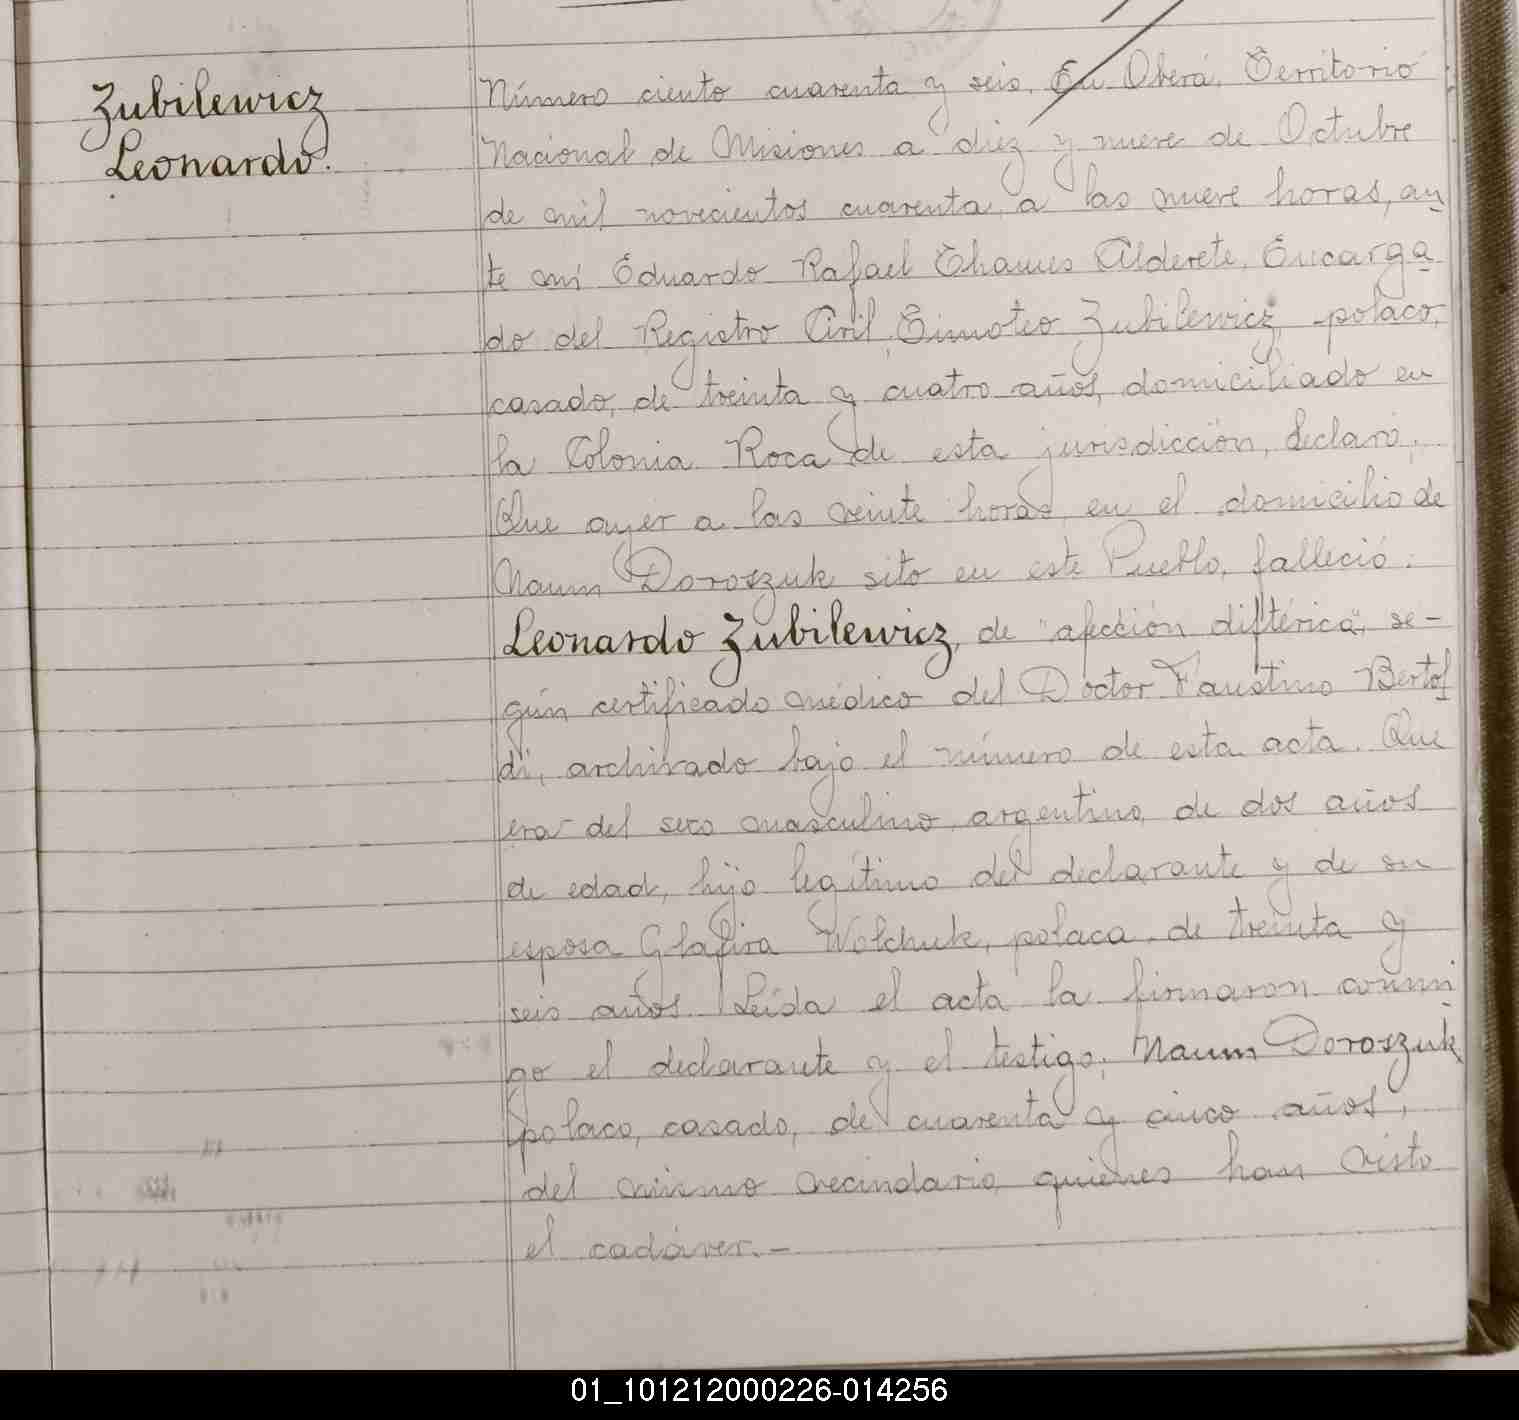 Zubilewicz
Leonardo.
Número ciento cuarenta y seis. En Oberá, Territorio
Nacional de Misiones a diez y nueve de Octubre
de mil novecientos cuarenta a las nueve horas, an
te mí Eduardo Rafael Thames Alderete, Encarga
do del Registro Civil, Timoteo Zubilewicz, polaco,
casado, de treinta y cuatro años, domiciliado en
la Colonia Roca de esta jurisdicción, declaró:
Que ayer a las veinte horas, en el domicilio de
Naum Doroszuk sito en este Pueblo, falleció:
Leonardo Zubilewicz, de "afección diftérica", se-
gún certificado médico del Doctor Faustino Bertol
di, archivado bajo el número de esta acta. Que
era del sexo masculino, argentino, de dos años
de edad, hijo legítimo del declarante y de su
esposa Glafira Wolchuk, polaca, de treinta y
seis años. Leída el acta la firmaron conmi
go el declarante y el testigo: Naum Doroszuk
polaco, casado, de cuarenta y cinco años,
del mismo vecindario, quienes han visto
el cadáver.-
01_101212000226-014256